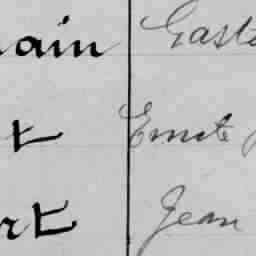 ain Gasto
t Ernest
rt Jean